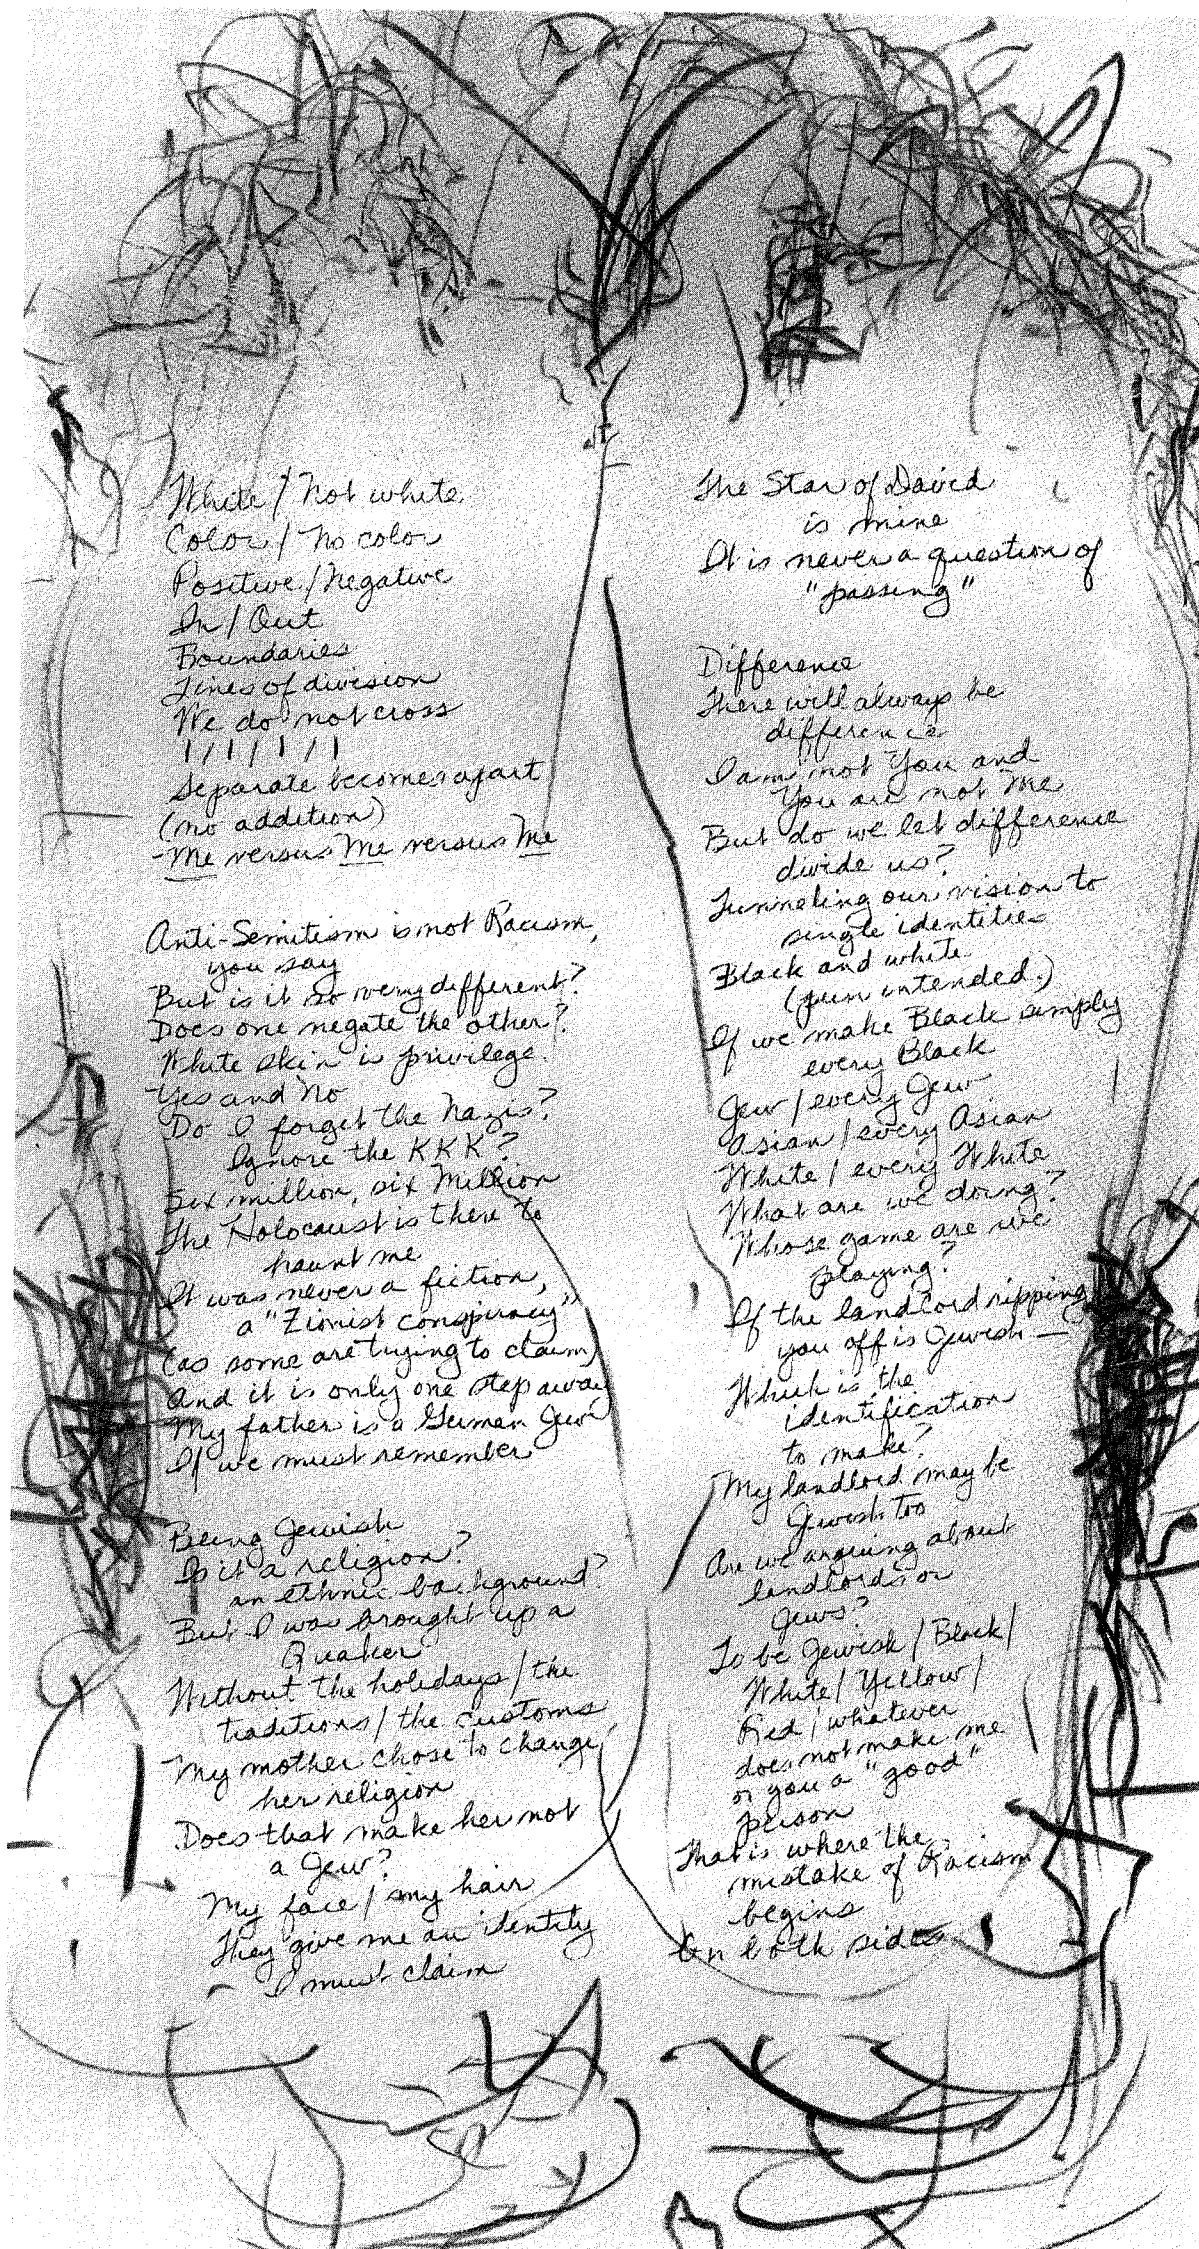 White / Not white
Color / No color
Positive / Negative
In / Out
Boundaries
Lines of division
We do not cross
I / I / I / I
Separate becomes apart
(no addition)
- Me versus Me versus Me
Anti-Semitism is not Racism,
you say
But is it so very different?
Does one negate the other?
White skin is privilege.
Yes and No
Do I forget the Nazis?
Ignore the KKK?
Six million, six Million
The Holocaust is there to
haunt me
It was never a fiction,
a "Zionist conspiracy"
(as some are trying to claim)
And it is only one step away
My father is a German Jew
If we must remember
Being Jewish
Is it a religion?
an ethnic background?
But I was brought up a
Quaker
Without the holidays / the
traditions / the customs
My mother chose to change
her religion
Does that make her not
a Jew?
My face / my hair
They give me an identity
I must claim
The Star of David
is mine
It is never a question of
"passing"
Difference
There will always be
difference
I am not You and
You are not Me
But do we let difference
divide us?
Tunneling our vision to
single identities
Black and white
(pun intended.)
If we make Black simply
every Black
Jew / every Jew
Asian / every Asian
White / every White
What are we doing?
Whose game are we
playing?
If the landlord ripping
you off is Jewish —
Which is the
identification
to make?
My landlord may be
Jewish too
Are we arguing about
landlords or
Jews?
To be Jewish / Black /
White / Yellow /
Red / whatever
does not make me
or you a "good"
person
That is where the
mistake of Racism
begins
On both sides